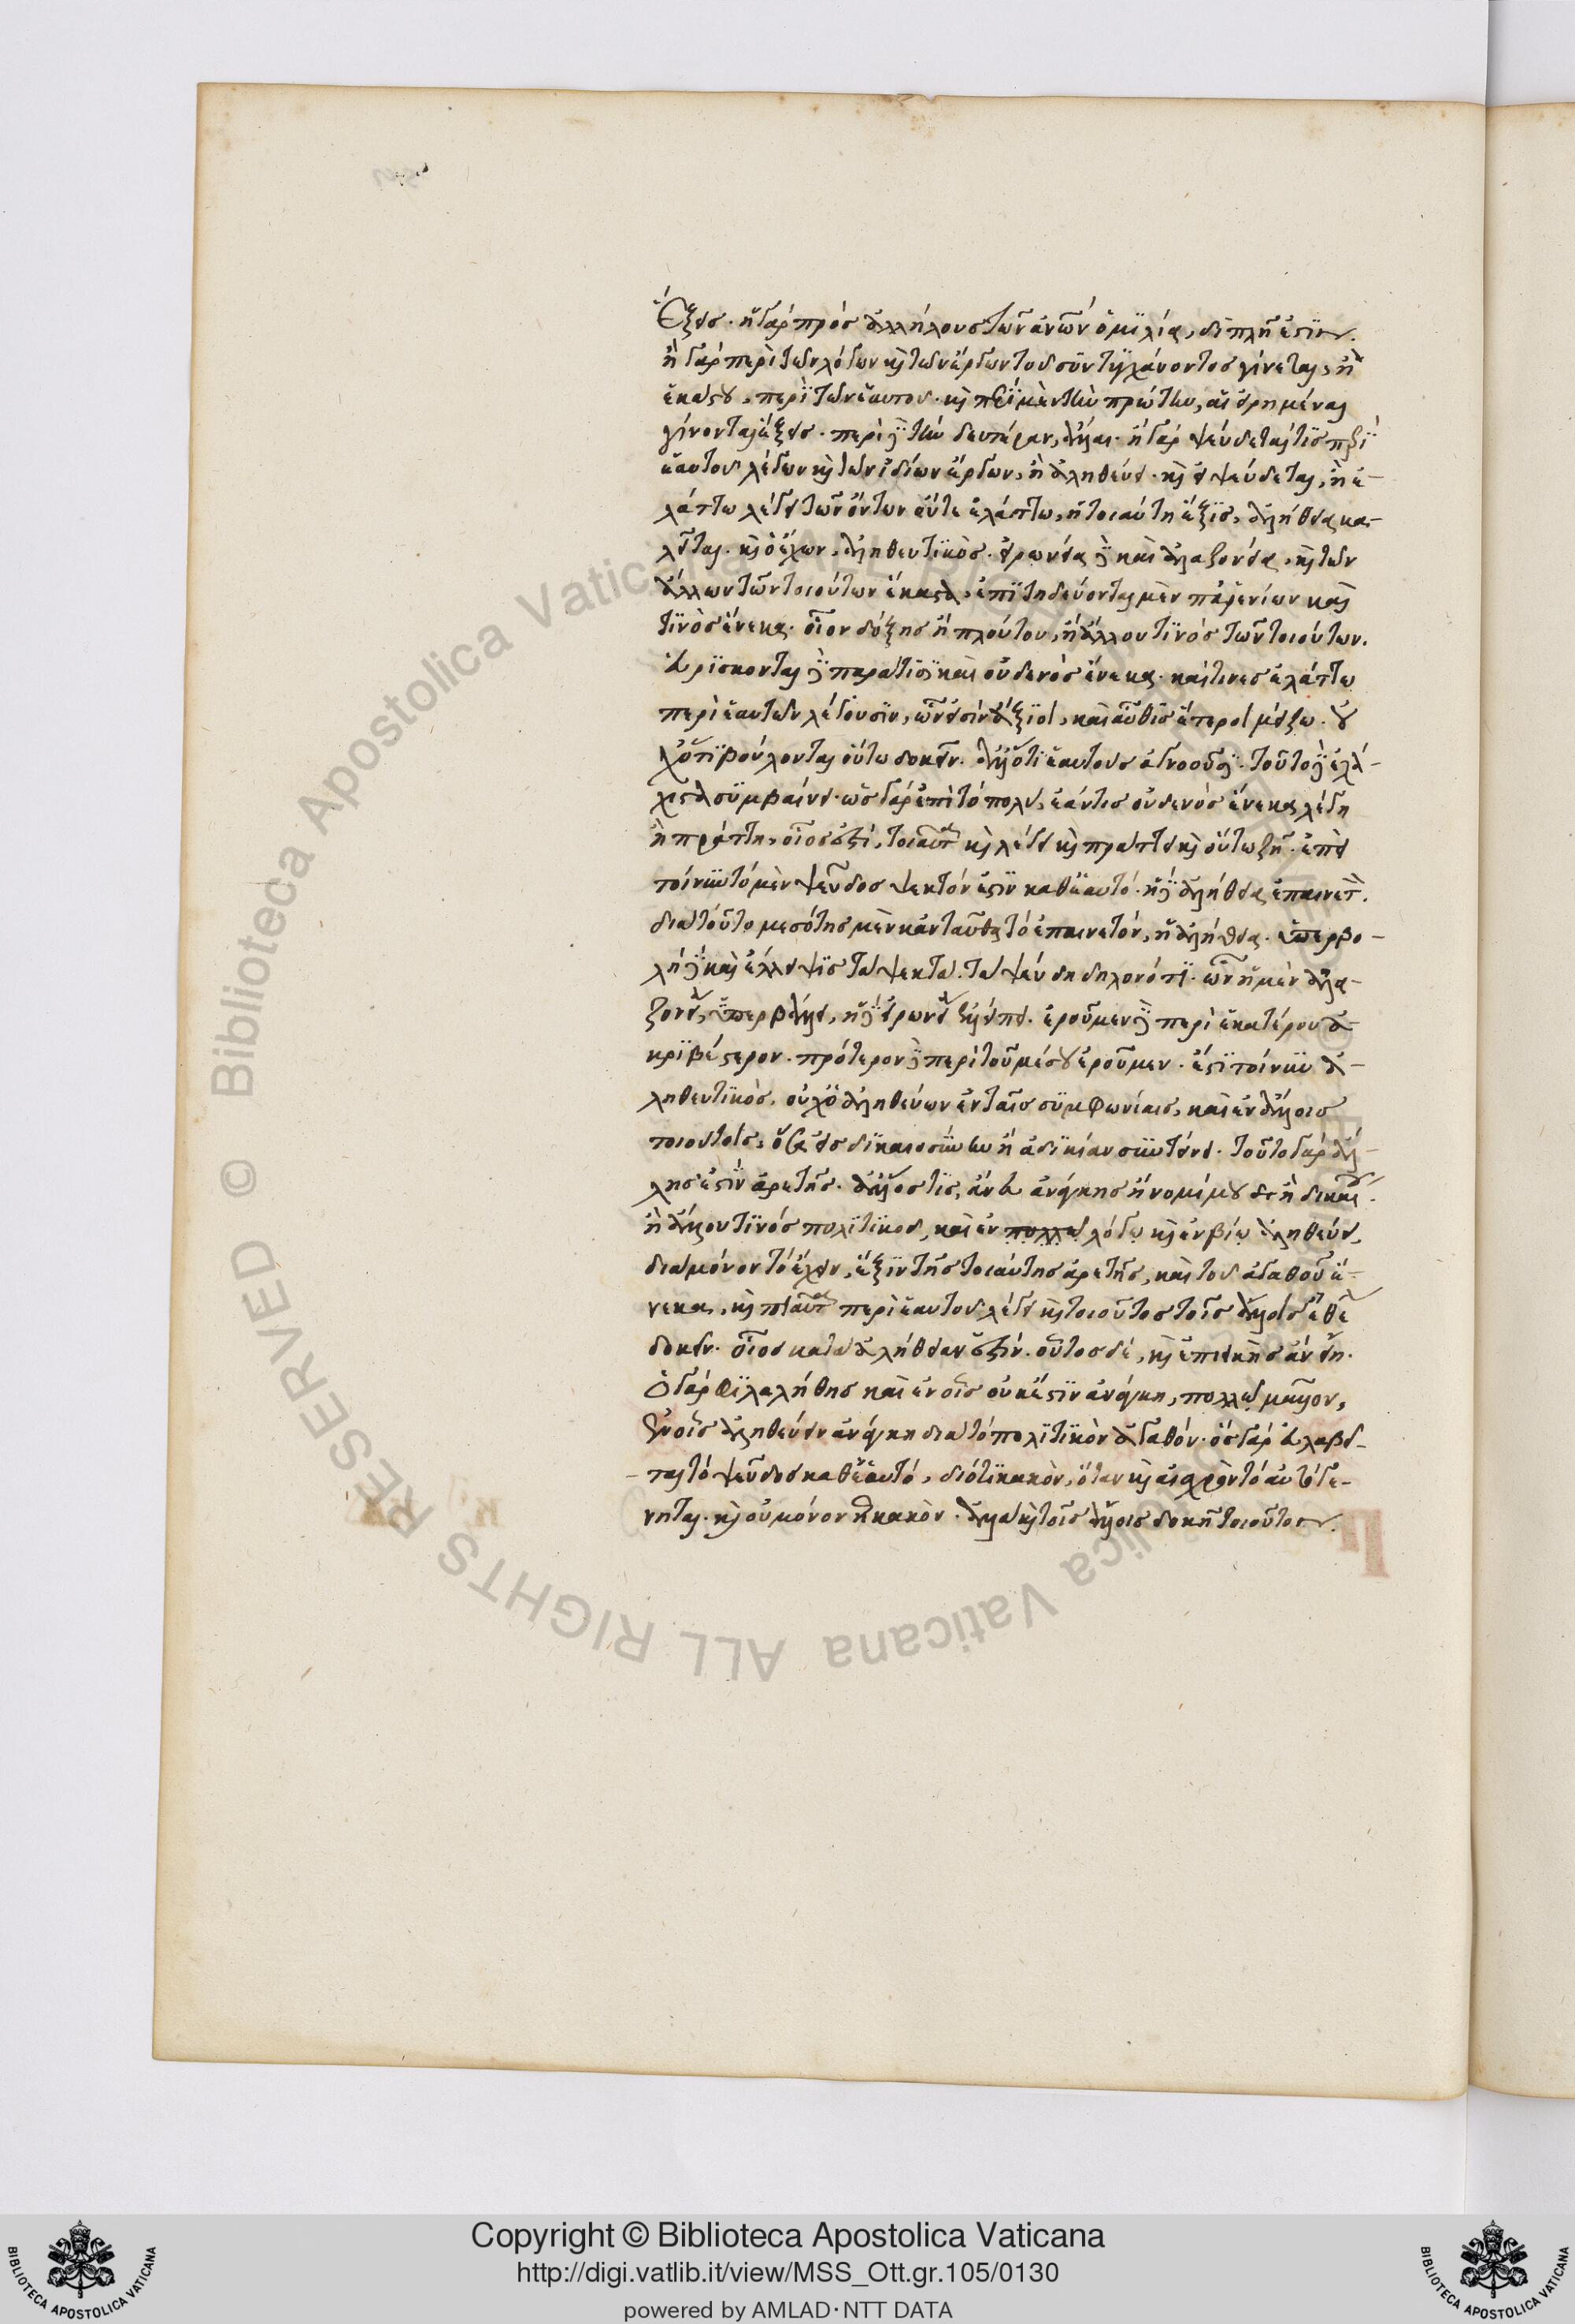 ἕξεις. ἡ γὰρ πρὸς ἀλλήλους τῶν ἀνων ὁμιλία, διπλῆ ἐστιν.
ἢ γὰρ περὶ τῶν λόγων καὶ τῶν ἔργων τοῦ συντυγχάνοντος γίνεται, ἢ
ἑκάστου, περὶ τῶν ἑαυτοῦ. καὶ περὶ μὲν τὴν πρώτην, αἱ εἰρημέναι
γίνονται ἕξεις. περὶ δὲ τὴν δευτέραν, ἄλλαι. ἢ γὰρ ψεύδεταί τις περὶ
ἑαυτοῦ λέγων καὶ τῶν ἰδίων ἔργων, ἢ ἀληθεύει. καὶ εἰ ψεύδεται, ἢ ἐ-
λάττω λέγει τῶν ὄντων οὔτε ἐλάττω, ἡ τοιαύτη ἕξις, ἀλήθεια κα-
λεῖται. καὶ ὁ ἔχων, ἀληθευτικός. εἰρωνεία δὲ καὶ ἀλαζονεία, καὶ τῶν
ἄλλων τῶν τοιούτων ἕκαστα, ἐπιτηδεύονται μὲν παρ' ἐνίων καὶ
τινὸς ἕνεκα. οἷον δόξης ἢ πλούτου, ἢ ἄλλου τινὸς τῶν τοιούτων.
εὑρίσκονται δὲ παρά τισι καὶ οὐδενὸς ἕνεκα. καί τινες ἐλάττω
περὶ ἑαυτῶν λέγουσιν, ὧν εἰσὶν ἄξιοι, καὶ αὖθις ἕτεροι μείζω. οὐ
χ' ὅτι βούλονται οὕτω δοκεῖν. ἀλλ' ὅτι ἑαυτοὺς ἀγνοοῦσι. τοῦτο δὲ ἐλά-
χιστα συμβαίνει. ὡς γὰρ ἐπὶ τὸ πολὺ, ἐάν τις οὐδενὸς ἕνεκα λέγῃ
ἢ πράττῃ, οἷος ἐστί, τοιαῦτα καὶ λέγει καὶ πράττει καὶ οὕτω ζῇ. ἐπεὶ
τοίνυν τὸ μὲν ψεῦδος ψεκτόν ἐστιν καθ' ἑαυτό. ἡ δὲ ἀλήθεια ἐπαινετὸν.
διὰ τοῦτο μεσότης μὲν κἀνταῦθα τὸ ἐπαινετόν, ἡ ἀλήθεια. ὑπερβο-
λὴ δὲ καὶ ἔλλειψις τὰ ψεκτά. τὰ ψευδῆ δηλονότι. ὧν ἡ μὲν ἀλα-
ζονεία, ὑπερβάλλει, ἡ δὲ εἰρωνεία ἐλλείπει. ἐροῦμεν δὲ περὶ ἑκατέρου ἀ-
κριβέστερον. πρότερον δὲ περὶ τοῦ μέσου ἐροῦμεν. ἔστι τοίνυν ἀ-
ληθευτικὸς, οὐχ ὁ ἀληθεύων ἐν ταῖς συμφωνίαις, καὶ ἐν ἄλλοις
τοιούτοις, ὅσα εἰς δικαιοσύνην ἢ ἀδικίαν συντείνει. τοῦτο γὰρ ἄλ-
λης ἐστὶν ἀρετῆς. ἀλλ' ὅστις, ἄνευ ἀνάγκης ἢ νομίμου ἢ δικαίου
ἢ ἄλλου τινὸς πολιτικοῦ, καὶ ἐν πολλῷ λόγῳ καὶ ἐν βίῳ ἀληθεύει,
διὰ μόνον τὸ ἔχειν, ἕξιν τῆς τοιαύτης ἀρετῆς, καὶ τοῦ ἀγαθοῦ ἕ-
νεκα, καὶ τοιαῦτα περὶ ἑαυτοῦ λέγει καὶ τοιοῦτος τοῖς ἄλλοις ἐθέλει
δοκεῖν. οἷος κατὰ ἀλήθειαν ἐστίν. οὗτος δὲ, καὶ ἐπιεικὴς ἂν εἴη.
ὁ γὰρ φιλαλήθης καὶ ἐν οἷς οὐκ ἔστιν ἀνάγκη, πολλῷ μᾶλλον,
ἐν οἷς ἀληθεύειν ἀνάγκη διὰ τὸ πολιτικὸν ἀγαθόν. ὃς γὰρ εὐλαβεῖ-
ται τὸ ψεῦδος καθ' ἑαυτό, διότι κακὸν, ὅταν καὶ αἰσχρὸν τὸ αὐτὸ γέ-
νηται. καὶ οὐ μόνον ᾖ κακὸν. ἀλλὰ καὶ τοῖς ἄλλοις δοκῇ τοιοῦτον.
Copyright © Biblioteca Apostolica Vaticana
http://digi.vatlib.it/view/MSS_Ott.gr.105/0130
powered by AMLAD·NTT DATA